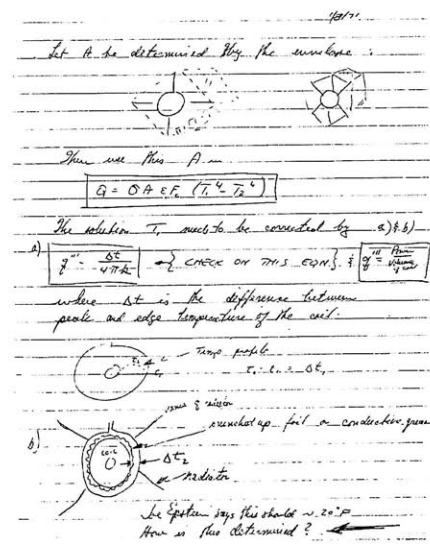 Let A be determined by the envelope :
Then use this A in
Q = σ A ε F (T₁⁴ - T₂⁴)
The solution T₁ needs to be corrected by a) & b)
a) q''' = Δt / 4πk { CHECK ON THIS EQN. } & q'''
where Δt is the difference between
peak and edge temperature of the coil.
Temp profile
= Δt₁
b)
scrunched up foil or conductive grease
coil
Δt₂
radiator
Epstein says this should ~ 20°F
How is this determined ?